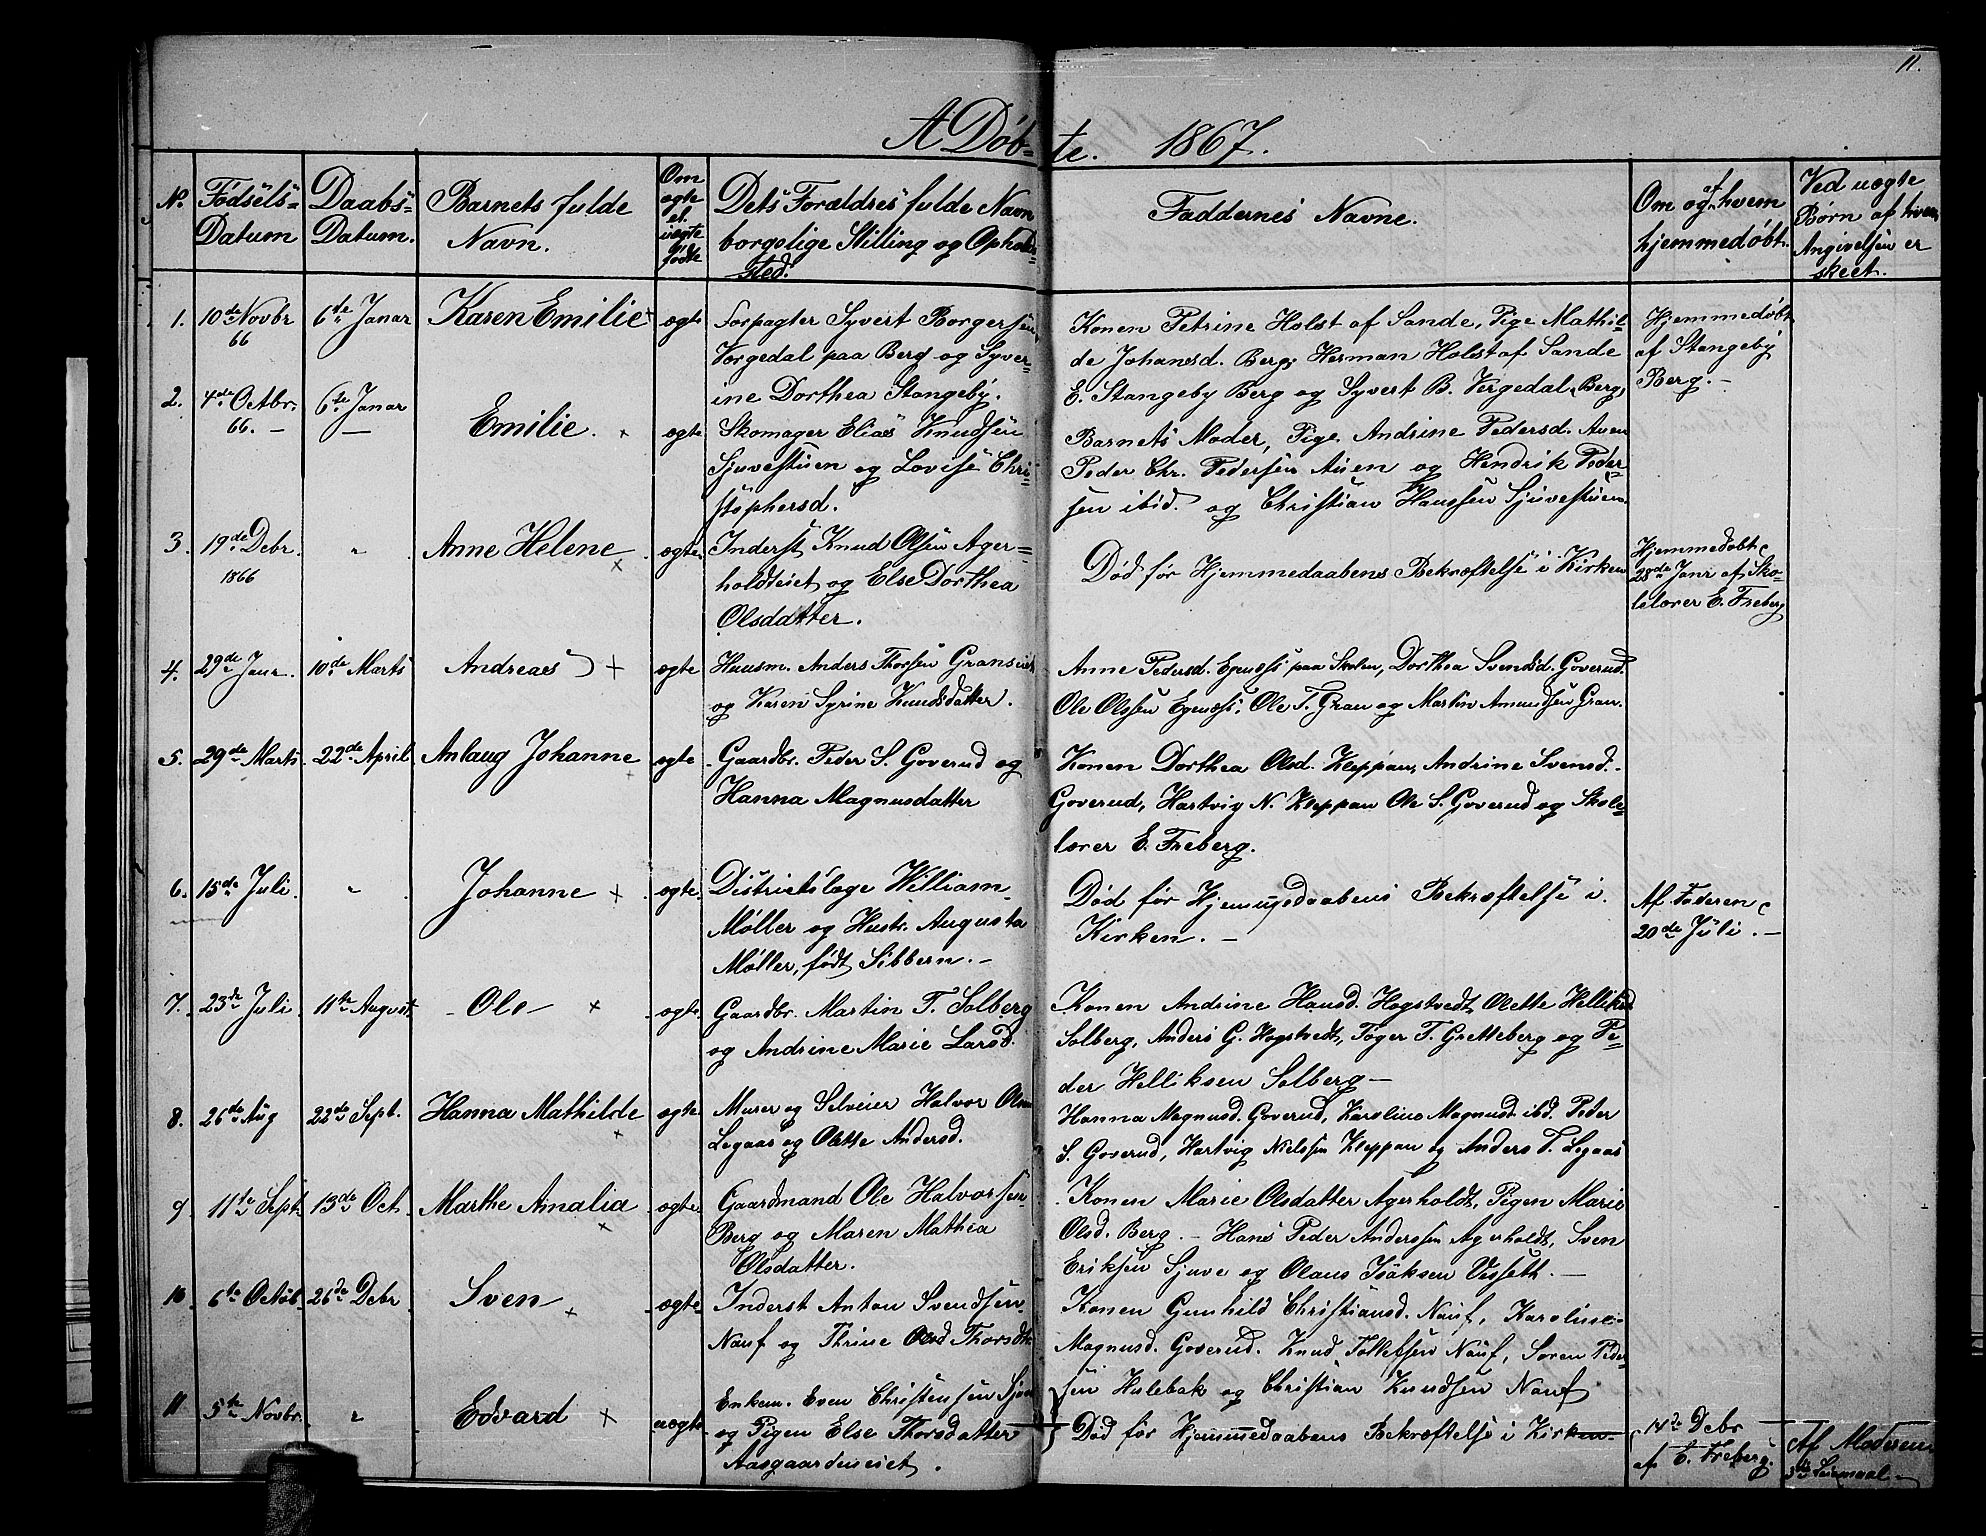 11.
A Døb- te. 1867.
No. Fødsels- Datum Daabs- Datum. Barnets fulde Navn. Om ægte el. uægte født Dets Forældres fulde Navn borgerlige Stilling og Opholds- sted. Faddernes Navne. Om og af hvem hjemmedøbt. Ved uægte Børn af hvem Angivelsen er skeet.
1. 10de Novbr 66 6te Janar Karen Emilie ægte Forpagter Syvert Borgersen
Vergedal paa Berg og Syver-
ine Dorthea Stangeby.
Konen Petrine Holst af Sande, Pige Mathil-
de Johansd. Berg, Herman Holst af Sande
E. Stangeby Berg og Syvert B. Vergedal, Berg,
Hjemmedøbt
af Stangeby
Berg. -
2. 4de Octbr. 66. - 6te Janar Emilie. ægte Skomager Elias Knudsen
Sjuvestuen og Lovise Chri-
stophersd.
Barnets Moder, Pige Andrine Pedersd. Auen
Peder Chr. Pedersen Auen og Hendrik Peder-
sen ibid. og Christian Hanssen Sjuvestuen.
3. 19de Debr. 1866 " Anne Helene ægte Inderst Knud Olsen Ager-
holdteiet og Else Dorthea
Olsdatter.
Død før Hjemmedaabens Bekræftelse i Kirken
Hjemmedøbt
28de Janr af Sko-
lelærer E. Freberg
4. 29de Janr. 10de Marts Andreas ægte Huusm. Anders Thorsen Graneiet
og Karen Syrine Knudsdatter.
Anne Pedersd. Egenæss paa Skolen, Dorthea Svendsd. Goverud.
Ole Olssen Egenæss, Ole T. Gran og Martin Amundsen Gran.
5. 29de Marts 22de April Anlaug Johanne ægte Gaardbr. Peder S. Goverud og
Hanna Magnusdatter
Konen Dorthea Olsd. Kleppan, Andrine Svensd.
Goverud, Hartvig N. Kleppan Ole S. Goverud og Skole-
lærer E. Freberg.
6. 15de Juli. " Johanne ægte Districtslæge William
Møller og Hustr. Augusta
Møller, født Sibbern. -
Død før Hjemmedaabens Bekræftelse i
Kirken. -
Af Faderen
20de Juli. -
7. 23de Juli 11te August - Ole ægte Gaardbr. Martin T. Solberg
og Andrine Marie Larsd.
Konen Andrine Hansd. Hogstvedt, Olette Helliksd
Solberg, Anders G. Hogstvedt, Toger T. Gretteberg og Pe-
der Helliksen Solberg -
8. 26de Aug 22de Sept. Hanna Mathilde ægte Murer og Selveier Halvor Olsen
Legaas og Olette Andersd.
Hanna Magnusd. Goverud, Karoline Magnusd. ibd. Peder
S. Goverud, Hartvig Nielssen Kleppan og Anders T. Legaas
9 11te Sept. 13de Oct. Marthe Amalia ægte Gaardmand Ole Halvorsen
Berg og Maren Mathea
Olsdatter.
Konen Marie Olsdatter Agerholdt, Pigen Marie
Olsd. Berg. - Hans Peder Anderssen Agerholdt, Sven
Eriksen Sjuve og Olaus Isaksen Vesseth. -
10 6te Octob. 26de Debr Sven ægte Inderst Anton Svendsen
Nauf og Thrine Olsd Thorsdtr
Konen Gunhild Christiansd. Nauf, Karoline
Magnusd. Goverud. Knud Tollefsen Nauf, Soren Peder-
sen Hulebak og Christian Knudsen Nauf
11 5te Novbr. " Edvard uægte Enkem. Even Christensen Sjuve
og Pigen Else Thorsdatter
Aasgaardeneiet.
Død før Hjemmedaabens Bekræftelse i Kirken
14de Debr
af E. Freberg.
Af Moderen
3de Leiermaal